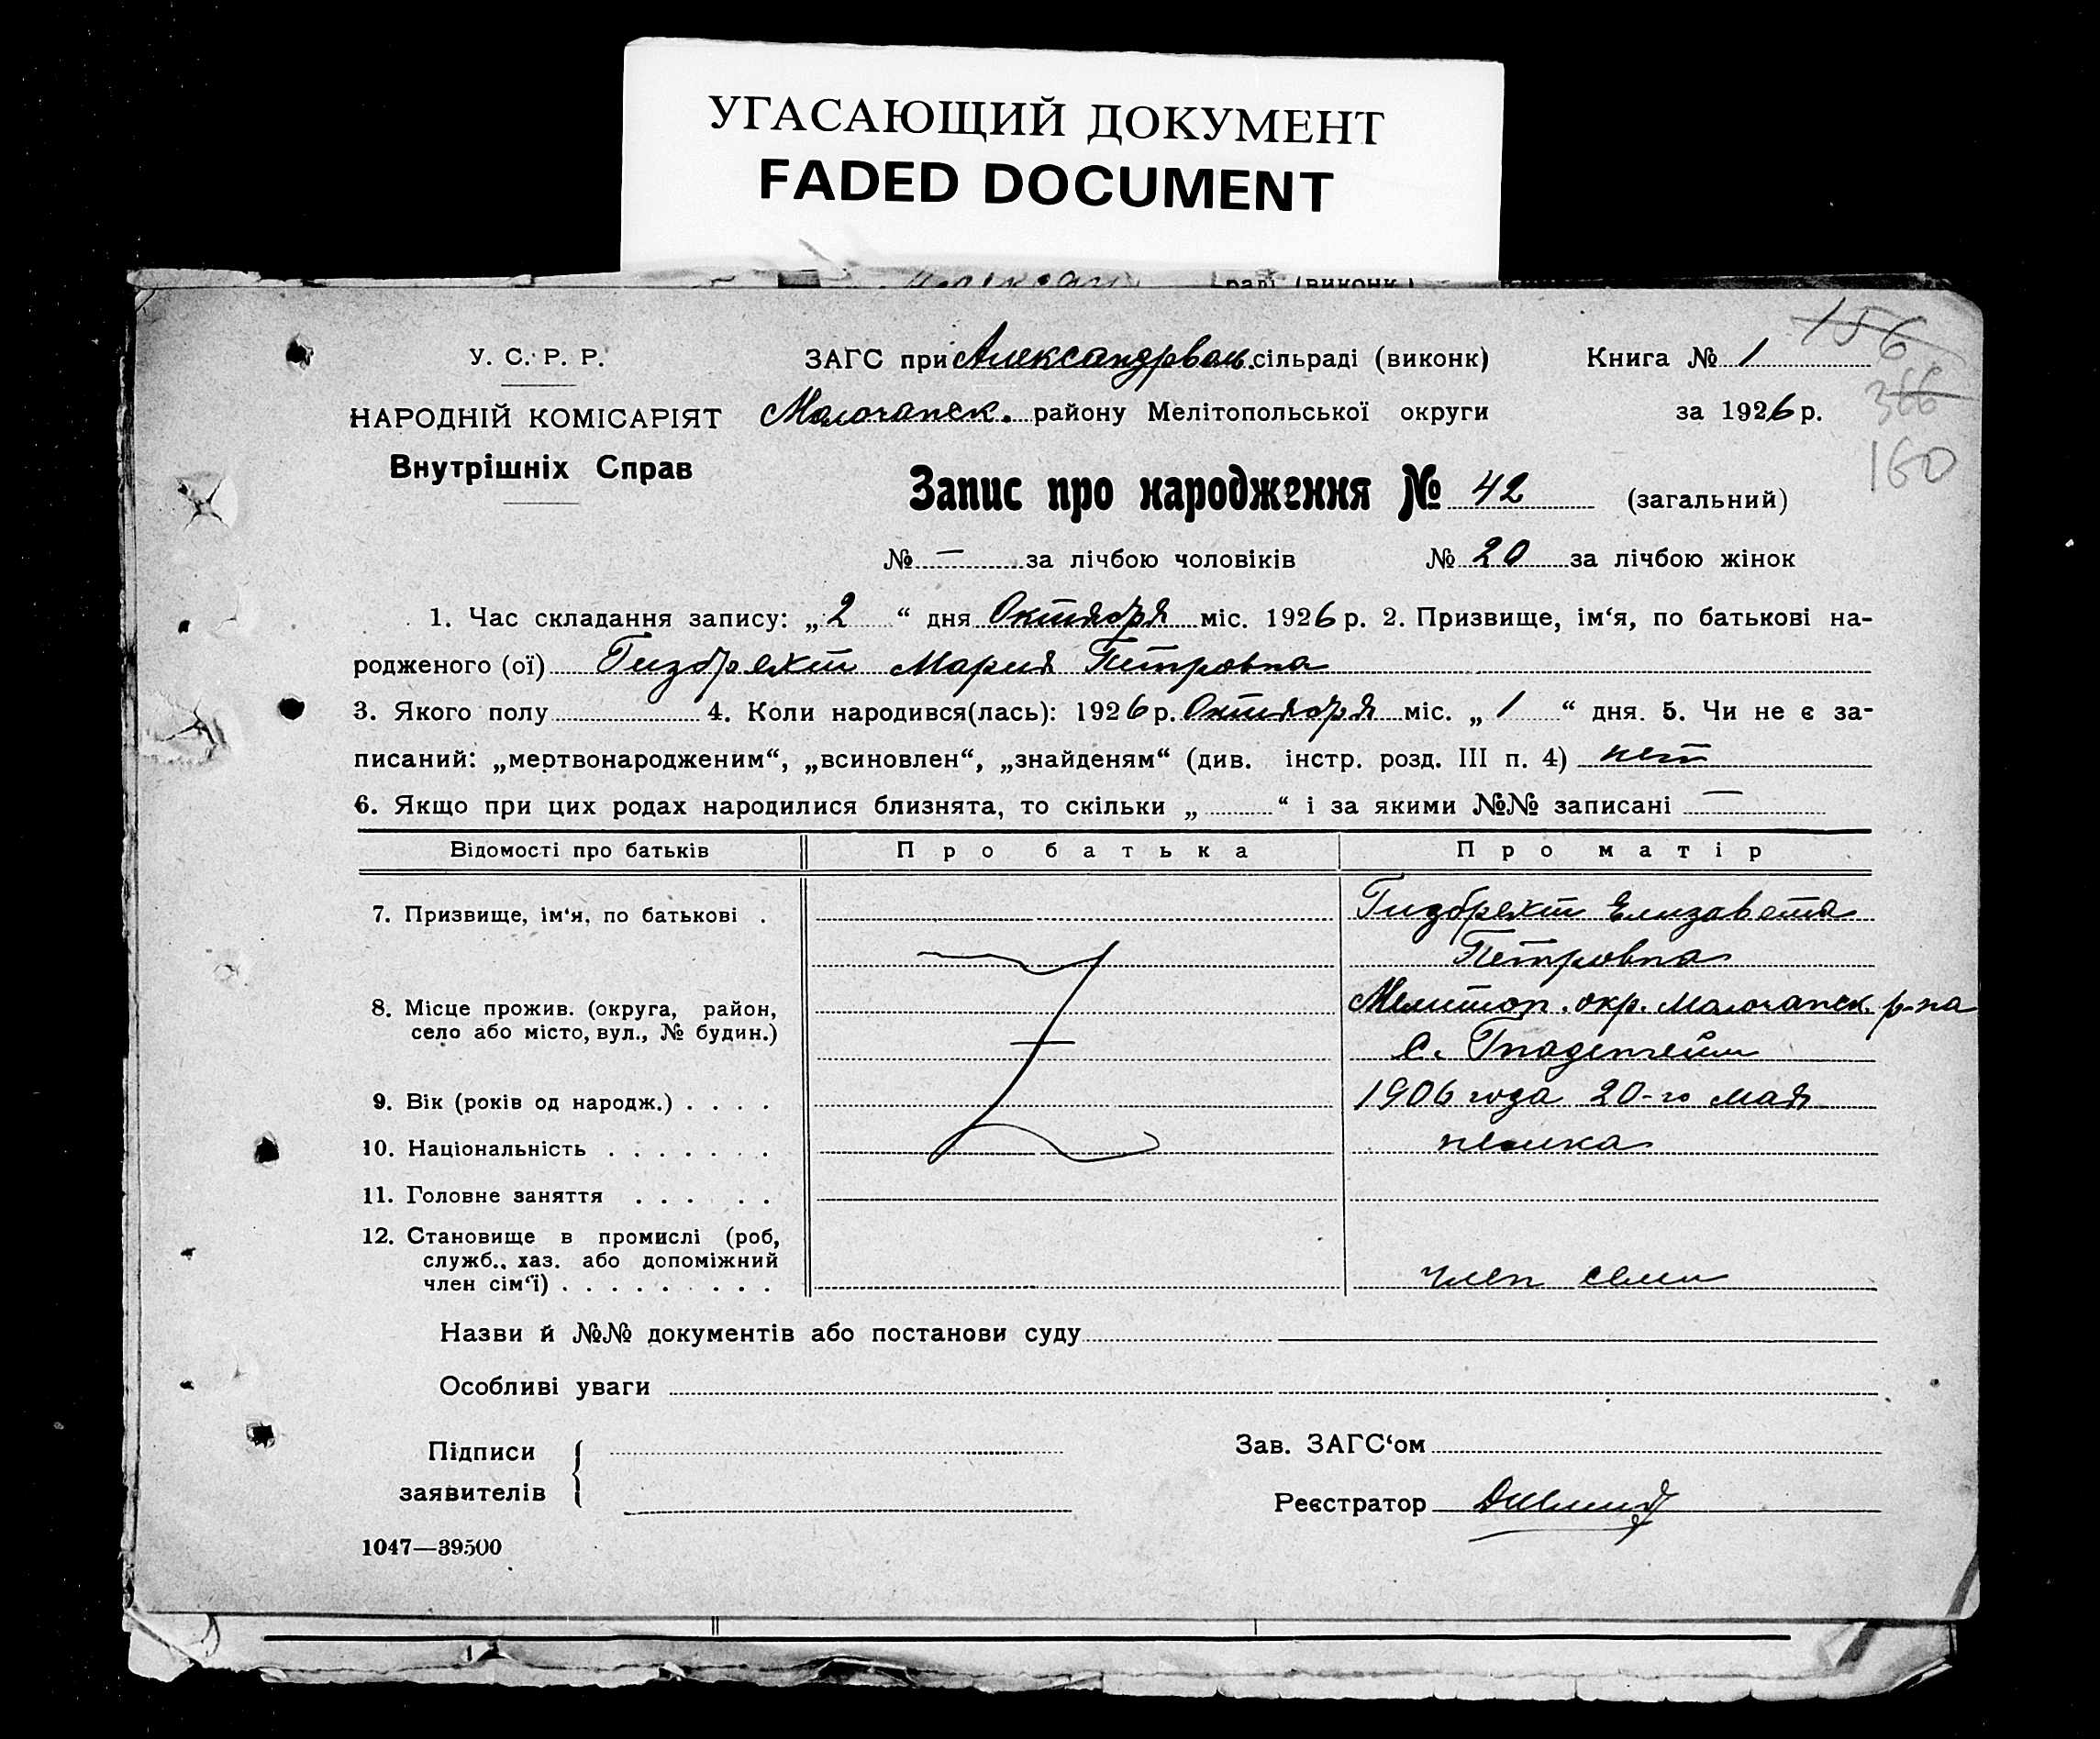 УГАСАЮЩИЙ ДОКУМЕНТ
FADED DOCUMENT
раді (виконк.)
У. С. Р. Р.
ЗАГС при Александрвск. сільраді (виконк)
Книга № 1
156
НАРОДНІЙ КОМІСАРІЯТ
Молочанск. району Мелітопольської округи
за 1926 р.
366
Внутрішніх Справ
160
Запис про народження № 42 (загальний)
№ — за лічбою чоловіків № 20 за лічбою жінок
1. Час складання запису: „ 2 “ дня Октября міс. 1926 р. 2. Призвище, ім‘я, по батькові на-
родженого (ої) Гизбрехт Мария Петровна
3. Якого полу 4. Коли народився(лась): 1926 р. Октября міс. „ 1 “ дня. 5. Чи не є за-
писаний: „мертвонародженим“, „всиновлен“, „знайденям“ (див. інстр. розд. III п. 4) нет
6. Якщо при цих родах народилися близнята, то скільки „ “ і за якими №№ записані —
Відомості про батьків Про батька Про матір
7. Призвище, ім‘я, по батькові . Гизбрехт Елизавета
Петровна
8. Місце прожив. (округа, район, Мелитоп. окр. Молочанск. р-на
село або місто, вул., № будин.) С. Гнаденгейм
9. Вік (років од народж.) . . . . 1906 года 20-го мая
10. Національність . . . . . . . немка
11. Головне заняття . . . . . .
12. Становище в промислі (роб,
служб., хаз. або допоміжний
член сім‘ї) . . . . . . . . . член семи
Назви й №№ документів або постанови суду
Особливі уваги
Підписи
заявителів
Зав. ЗАГС‘ом
Реєстратор
1047—39500